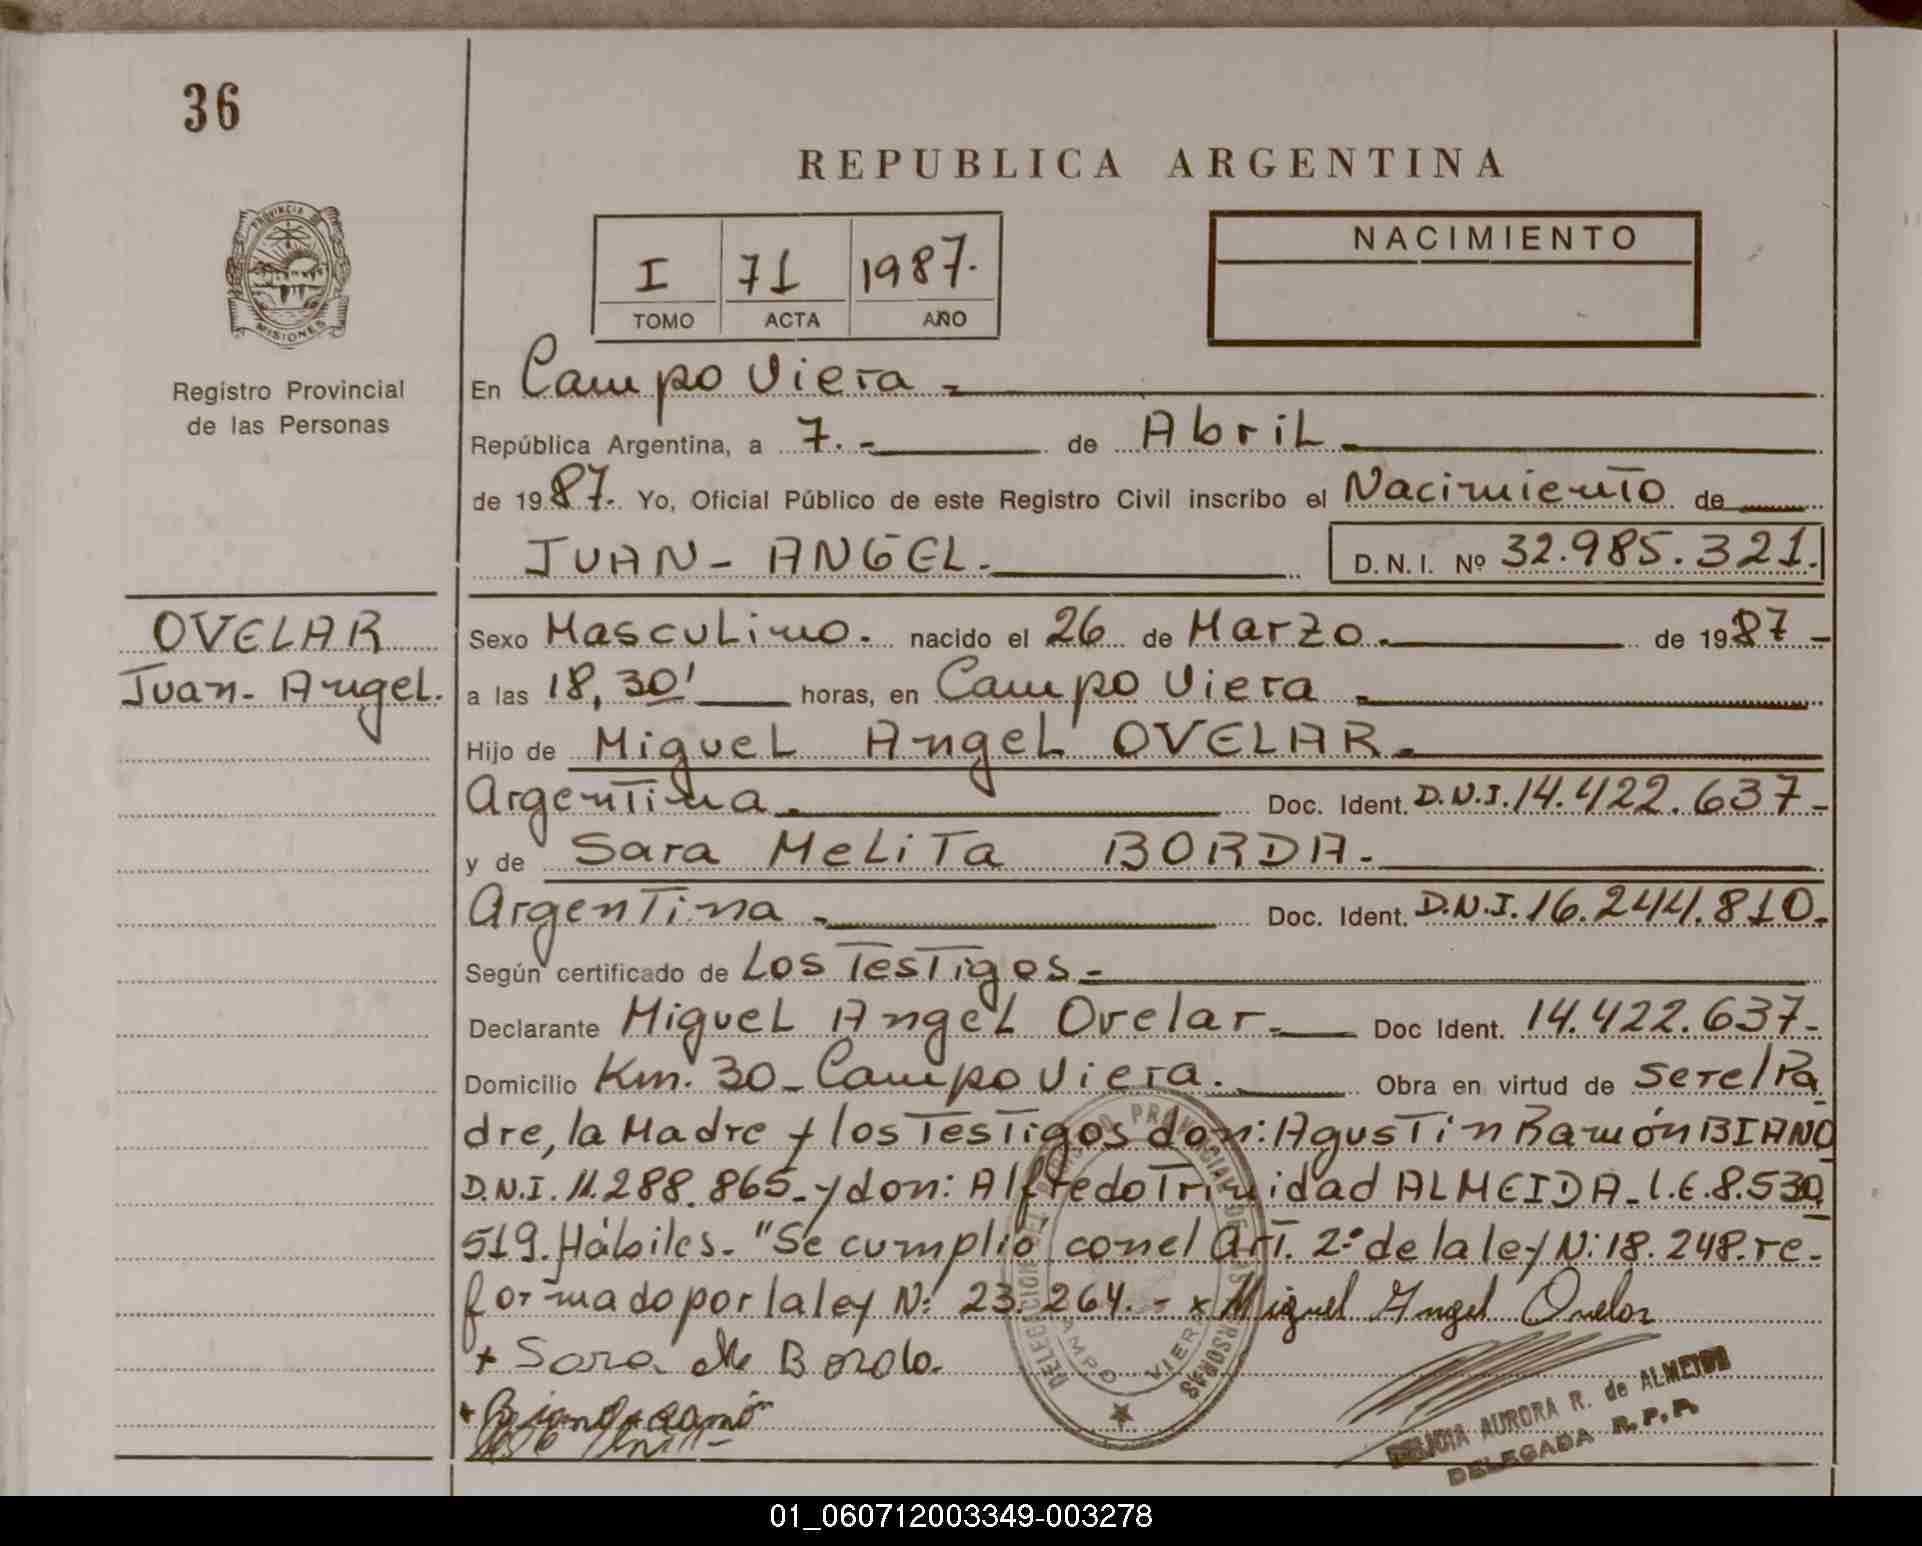 36
REPUBLICA ARGENTINA
PROVINCIA DE
MISIONES
Registro Provincial
de las Personas
I 71 1987.
TOMO ACTA AÑO
NACIMIENTO
En Campo Viera.-
República Argentina, a 7.- de Abril.
de 1987. Yo, Oficial Público de este Registro Civil inscribo el Nacimiento de
JUAN - ANGEL.
D. N. I. Nº 32.985.321.
OVELAR
Juan - Angel.
Sexo Masculino. nacido el 26 de Marzo. de 1987-
a las 18,30' horas, en Campo Viera.
Hijo de Miguel Angel OVELAR.
Argentina. Doc. Ident. D.N.I. 14.422.637-
y de Sara Melita BORDA.
Argentina. Doc. Ident. D.N.I. 16.244.810.
Según certificado de Los Testigos.-
Declarante Miguel Angel Ovelar. Doc Ident. 14.422.637-
Domicilio Km. 30 - Campo Viera. Obra en virtud de Ser el Pa
dre, la Madre y los Testigos don: Agustin Ramón BIANO
D.N.I. 11.288.865- y don: Alfredo Trinidad ALMEIDA - L.E. 8.530
519. Hábiles. - "Se cumplió con el Art. 2º de la ley N: 18.248. re-
formado por la ley N: 23.264. - x Miguel Angel Ovelar
+ Sara Me Borda.
DELEGACION DEL REGISTRO PROVINCIAL DE LAS PERSONAS
CAMPO VIERA
DELICIA AURORA R. de ALMEIDA
DELEGADA R.P.P.
01_060712003349-003278